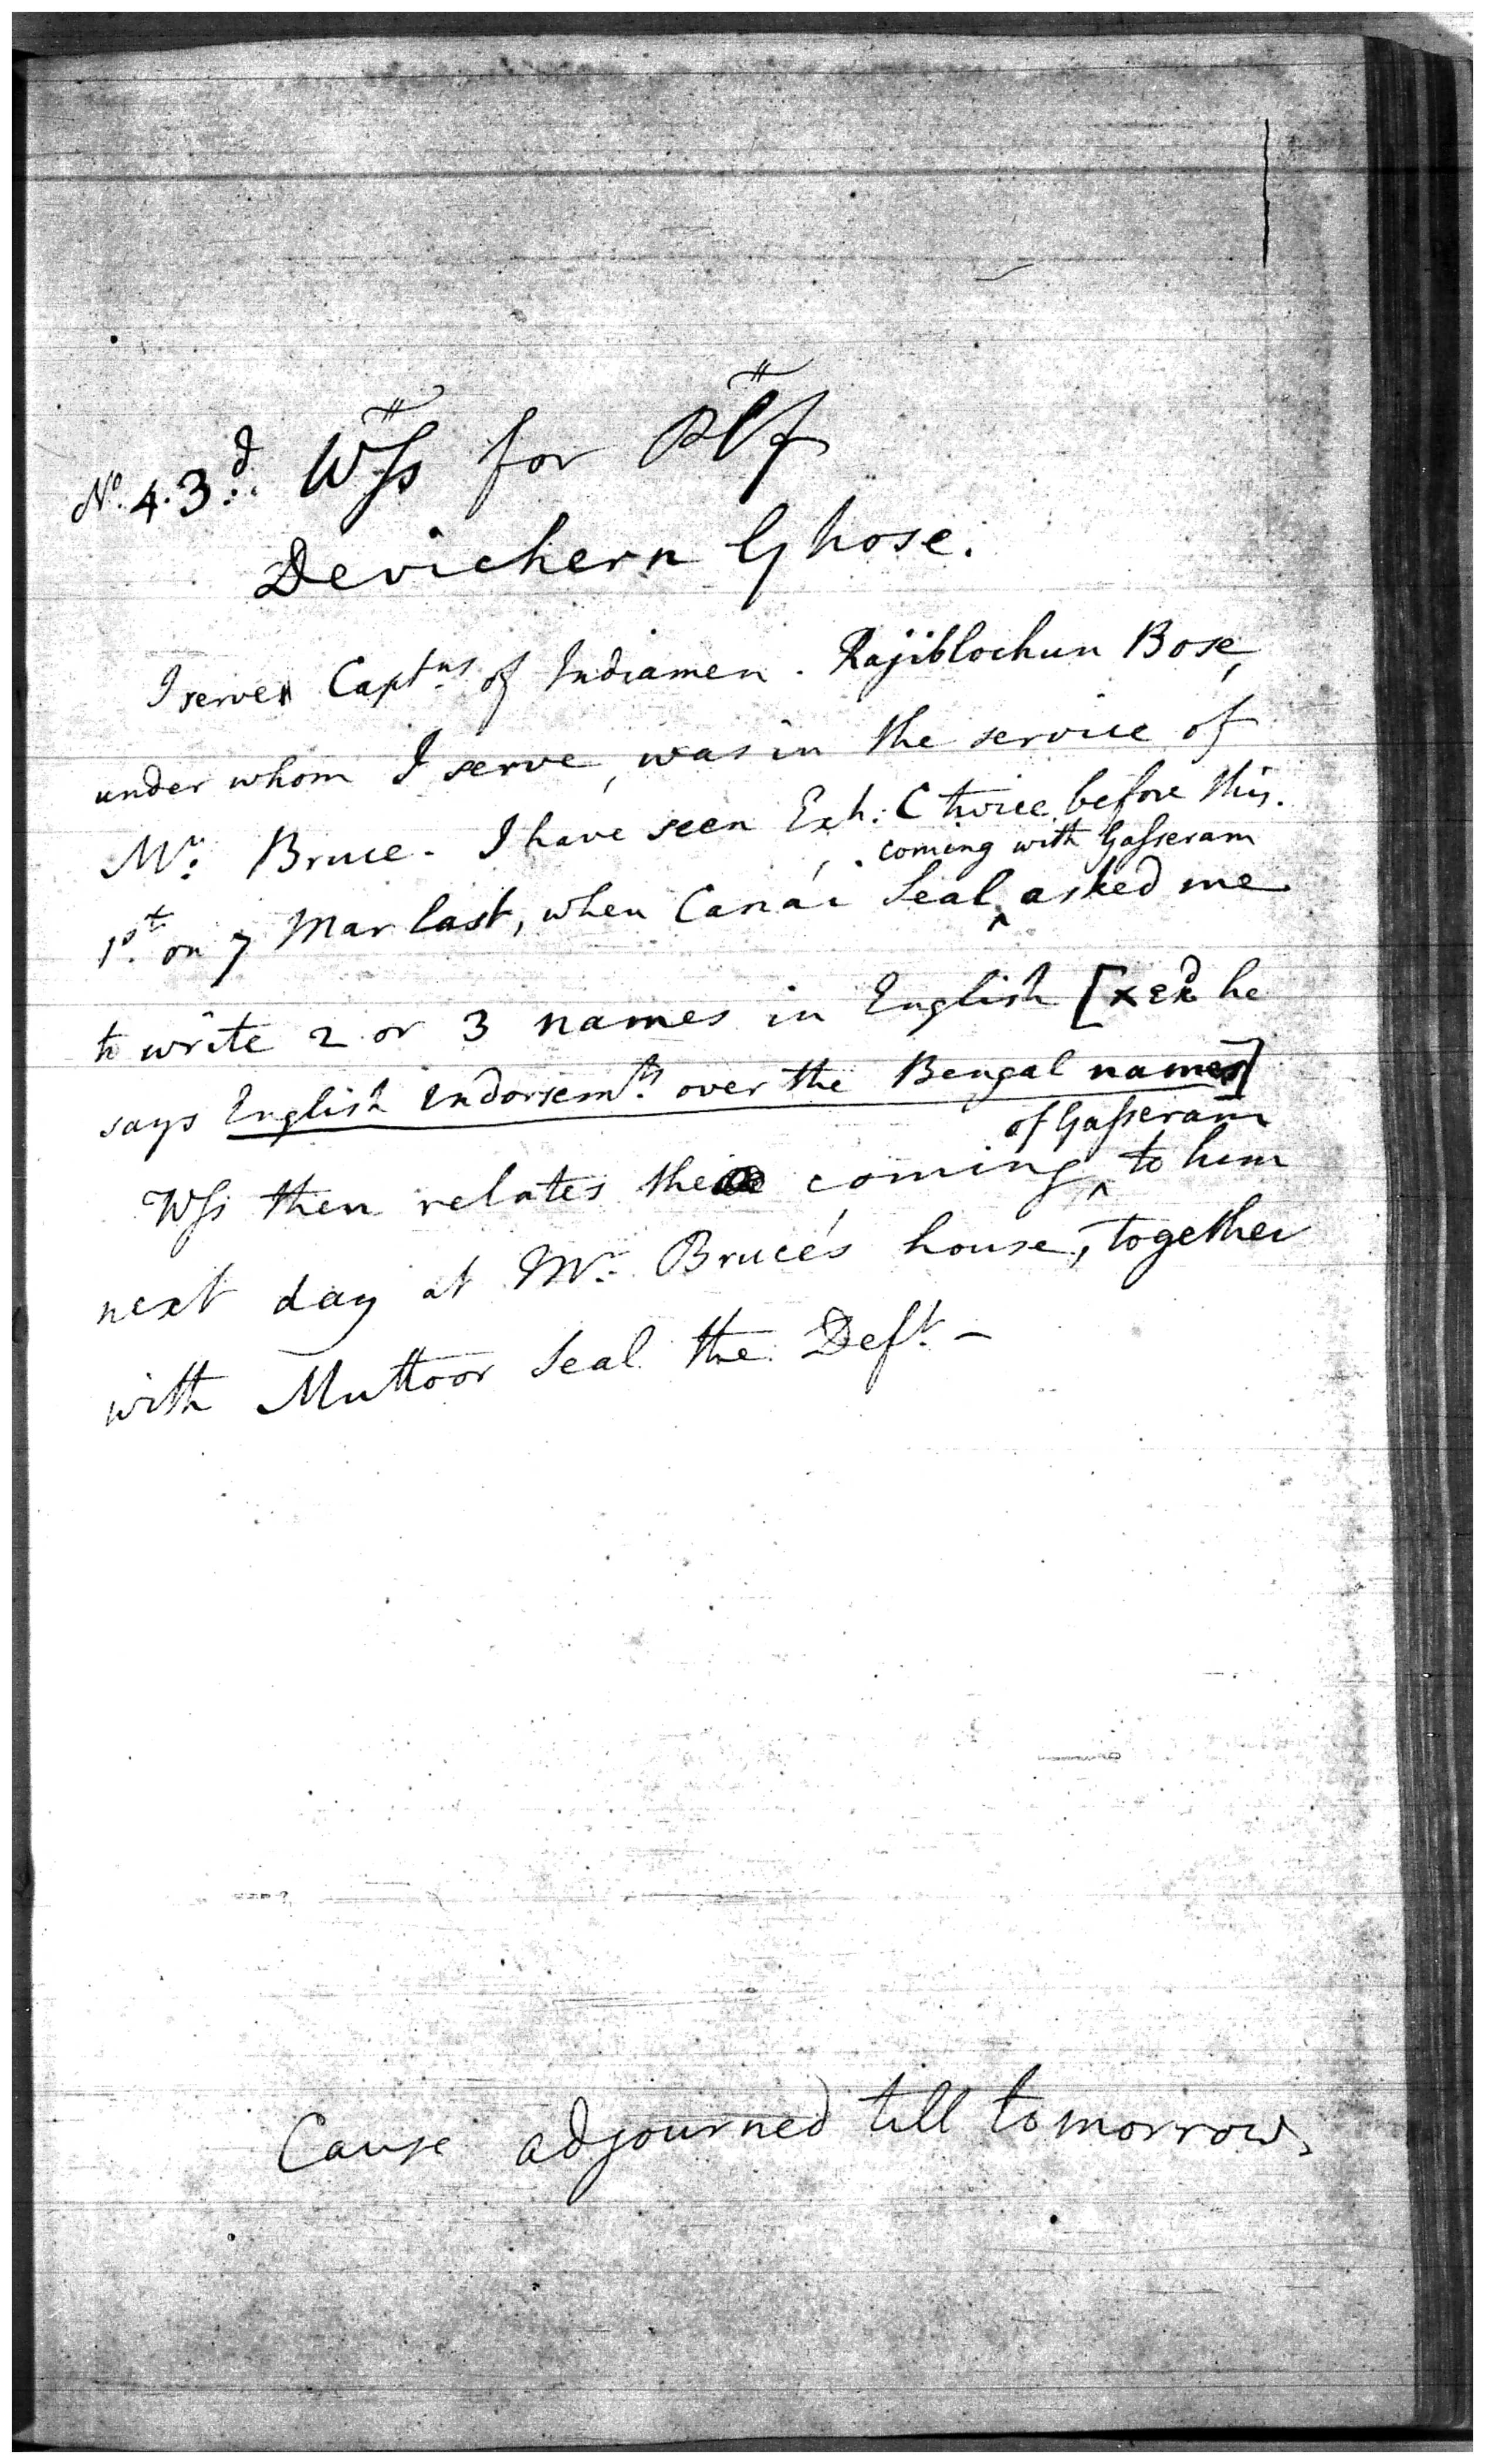 No. 4. 3d. Wss for Plf
Devichern Ghose.
I serve Captns of Indiamen. Rajiblochun Bose,
under whom I serve, was in the service of
Mr. Bruce. I have seen Exh: C twice before this.
coming with Gasseram
1st. on 7 Mar last, when Canái Seal ^ asked me
to write 2 or 3 names in English [xexd he
says English Indorsemts. over the Bengal names]
of Gasseram
Wss then relates the coming ^ to him
next day at Mr. Bruce's house, together
with Muttoor Seal the Deft. —
Cause adjourned till tomorrow.